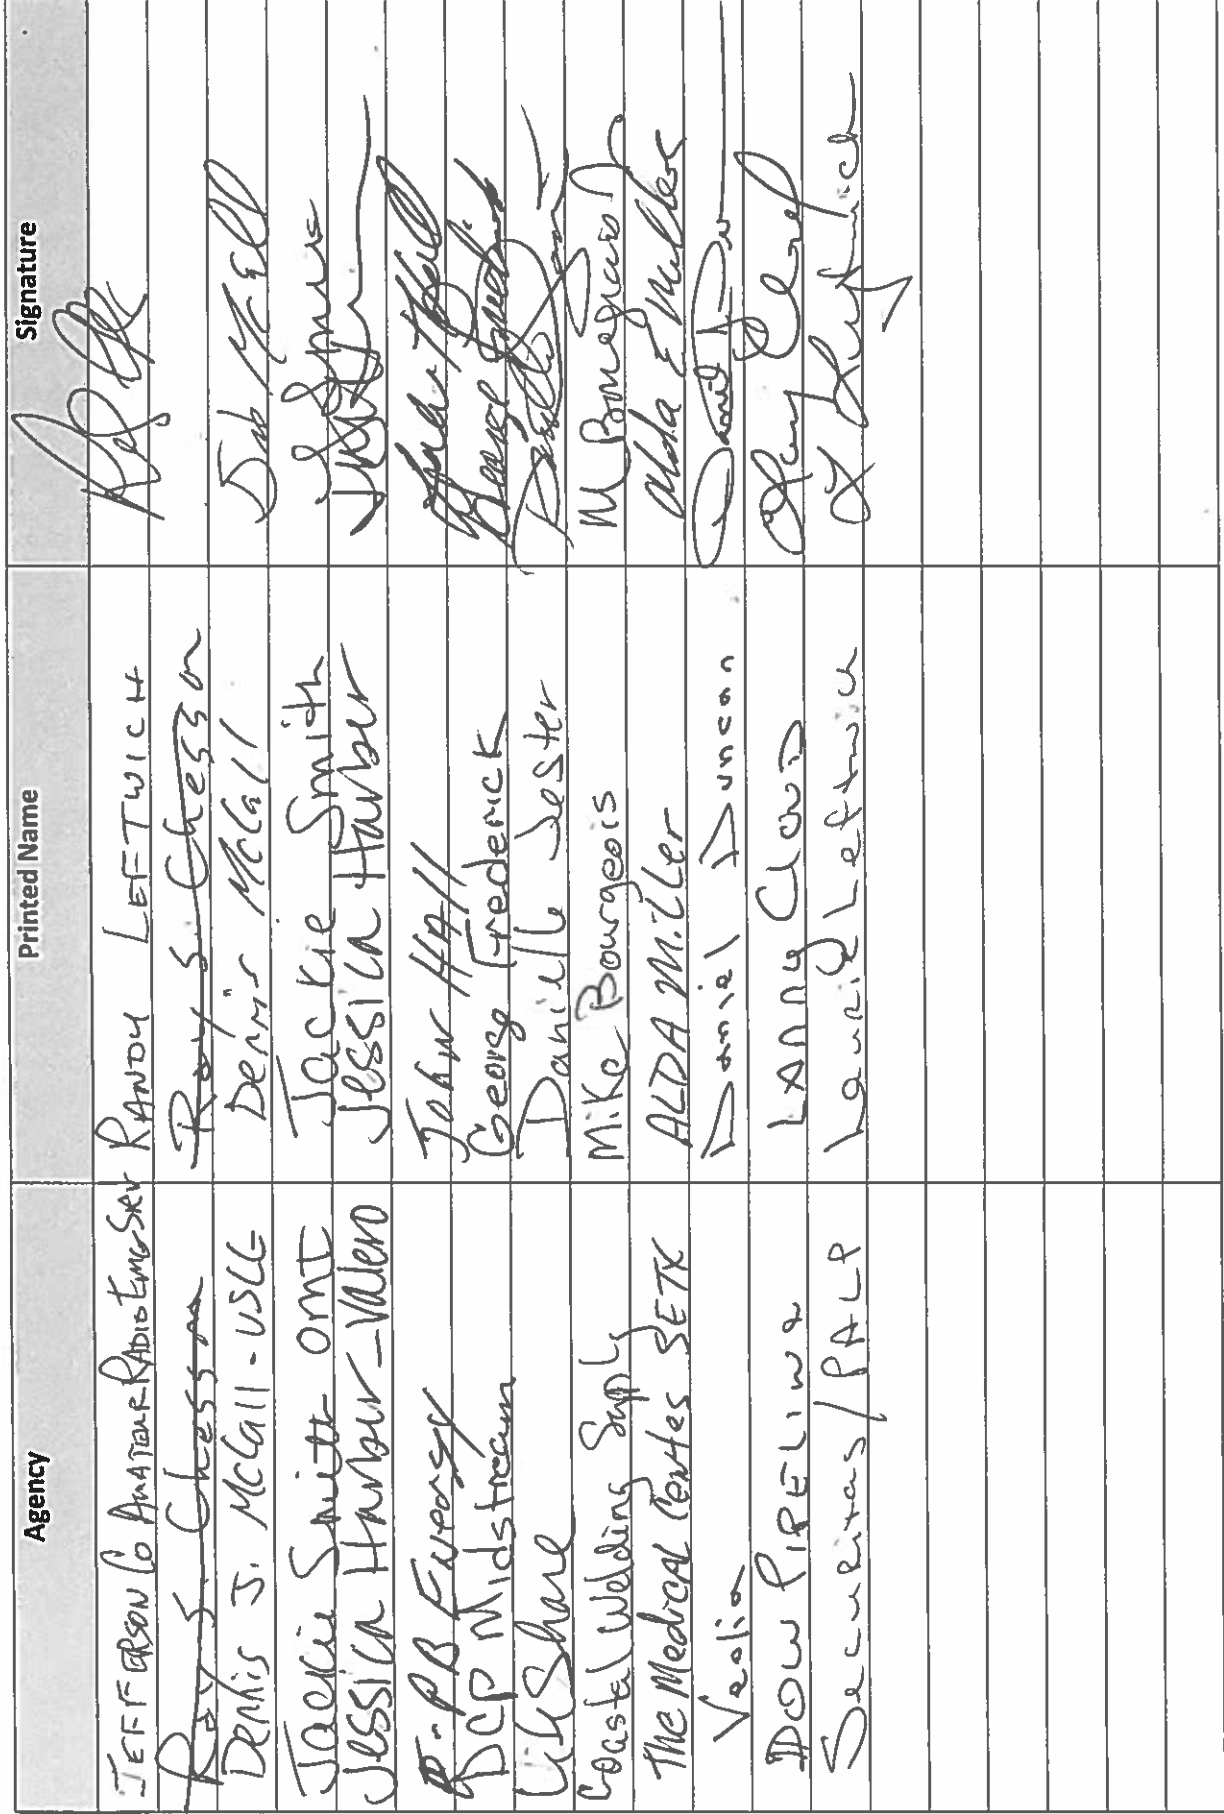 Agency Printed Name Signature
JEFFERSON CO AMATEUR RADIO EMG SRV RANDY LEFTWICH
Roy S. Chesson Roy S Chesson
Dennis J. McCall - USCG Dennis McCall
Jackie Smith OMI Jackie Smith J Smith
Jessica Harber - Valero Jessica Harber
PB Energy John HAll John Hall
DCP Midstream George Frederick George Frederick
Danielle Jester
Coastal Welding Supply Mike Bourgeois M Bourgeois
The Medical Center SETX ALDA MiLLer Alda E Miller
Veolia Daniel Duncan
DOW PIPELINE LANNY CLOUD
Securitas/PALP Laurie Leftwich L Leftwich